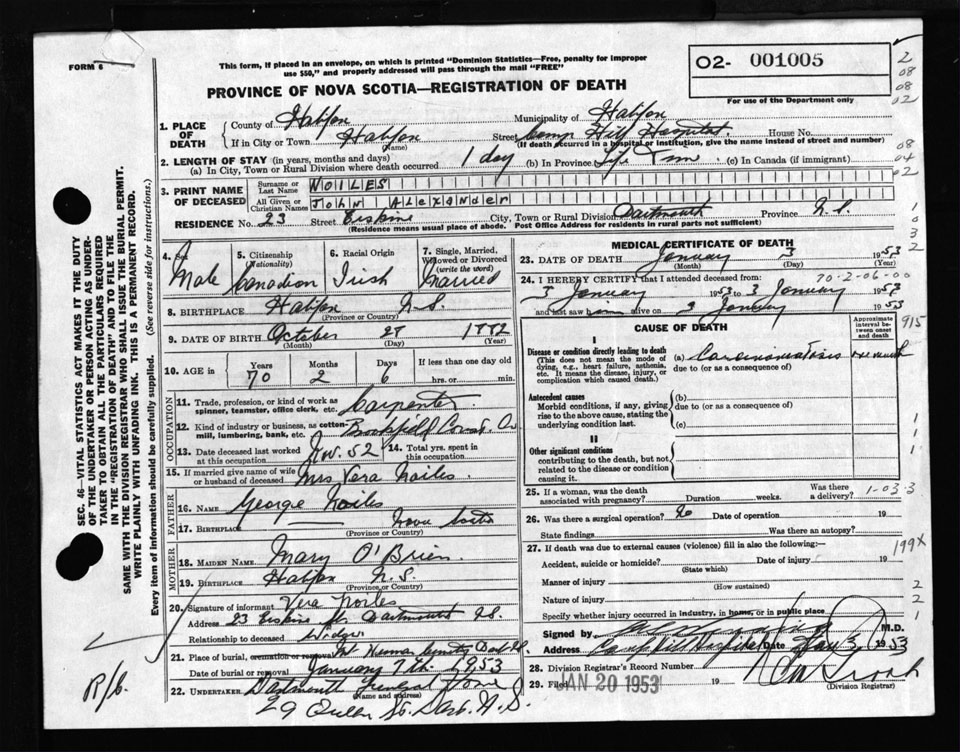 FORM 6
This form, if placed in an envelope, on which is printed "Dominion Statistics—Free, penalty for improper
use $50," and properly addressed will pass through the mail "FREE"
PROVINCE OF NOVA SCOTIA—REGISTRATION OF DEATH
O2- 001005
For use of the Department only
2
08
08
02
08
04
02
1
0
3
2
SEC. 46—VITAL STATISTICS ACT MAKES IT THE DUTY
OF THE UNDERTAKER OR PERSON ACTING AS UNDER-
TAKER TO OBTAIN ALL THE PARTICULARS REQUIRED
IN THE "REGISTRATION OF DEATH" AND TO FILE THE
SAME WITH THE DIVISION REGISTRAR WHO SHALL ISSUE THE BURIAL PERMIT.
WRITE PLAINLY WITH UNFADING INK. THIS IS A PERMANENT RECORD.
Every item of information should be carefully supplied. (See reverse side for instructions.)
1. PLACE OF DEATH
County of Halifax Municipality of Halifax
If in City or Town Halifax (Name) Street Camp Hill Hospital House No.
(If death occurred in a hospital or institution, give the name instead of street and number)
2. LENGTH OF STAY (in years, months and days)
(a) In City, Town or Rural Division where death occurred 1 day (b) In Province Life Time (c) In Canada (if immigrant)
3. PRINT NAME OF DECEASED
Surname or Last Name NOILES
All Given or Christian Names JOHN ALEXANder
RESIDENCE No. 23 Street Erskine City, Town or Rural Division Dartmouth Province N.S.
(Residence means usual place of abode. Post Office Address for residents in rural parts not sufficient)
4. Sex Male
5. Citizenship (Nationality) Canadian
6. Racial Origin Irish
7. Single, Married, Widowed or Divorced (write the word) Married
8. BIRTHPLACE Halifax N.S.
(Province or Country)
9. DATE OF BIRTH October 28 1882
(Month) (Day) (Year)
10. AGE in Years 70 Months 2 Days 6 If less than one day old
hrs. or min.
OCCUPATION
11. Trade, profession, or kind of work as
spinner, teamster, office clerk, etc. Carpenter
12. Kind of industry or business, as cotton-
mill, lumbering, bank, etc. Brookfield Const. Co
13. Date deceased last worked at this occupation Nov. 52
14. Total yrs. spent in this occupation
15. If married give name of wife or husband of deceased Mrs Vera Noiles
FATHER
16. Name George Noiles
17. Birthplace Nova Scotia
(Province or Country)
MOTHER
18. MAIDEN NAME Mary O'Brien
19. BIRTHPLACE Halifax N.S.
(Province or Country)
20. Signature of informant Vera Noiles
Address 23 Erskine St. Dartmouth N.S.
Relationship to deceased Widow
21. Place of burial, cremation or removal
Date of burial or removal January 7th 1953
22. UNDERTAKER Dartmouth Funeral Home
(Name and address)
29 Queen St. Dart. N.S.
R/b.
MEDICAL CERTIFICATE OF DEATH
23. DATE OF DEATH January 3 1953
(Month) (Day) (Year)
70-2-06-00
24. I HEREBY CERTIFY that I attended deceased from:
January 1953 to 3 January 1953
and last saw him alive on 3 January 1953
CAUSE OF DEATH
Approximate interval between onset and death
915
I
Disease or condition directly leading to death
(This does not mean the mode of
dying, e.g., heart failure, asthenia,
etc. It means the disease, injury, or
complication which caused death.)
(a) Carcinomatosis one month
due to (or as a consequence of)
Antecedent causes
Morbid conditions, if any, giving
rise to the above cause, stating the
underlying condition last.
(b)
due to (or as a consequence of)
(c)
II
Other significant conditions
contributing to the death, but not
related to the disease or condition
causing it.
1
1
1
25. If a woman, was the death
associated with pregnancy? Duration weeks. Was there a delivery?
1-03-3
26. Was there a surgical operation? No Date of operation 19
State findings Was there an autopsy?
27. If death was due to external causes (violence) fill in also the following:—
199X
Accident, suicide or homicide? (State which) Date of injury 19
Manner of injury (How sustained)
Nature of injury
Specify whether injury occurred in industry, in home, or in public place
2
2
1
Signed by M.D.
Address Camp Hill Hospital Date Jan 3 1953
28. Division Registrar's Record Number
29. Filed JAN 20 1953 19
(Division Registrar)